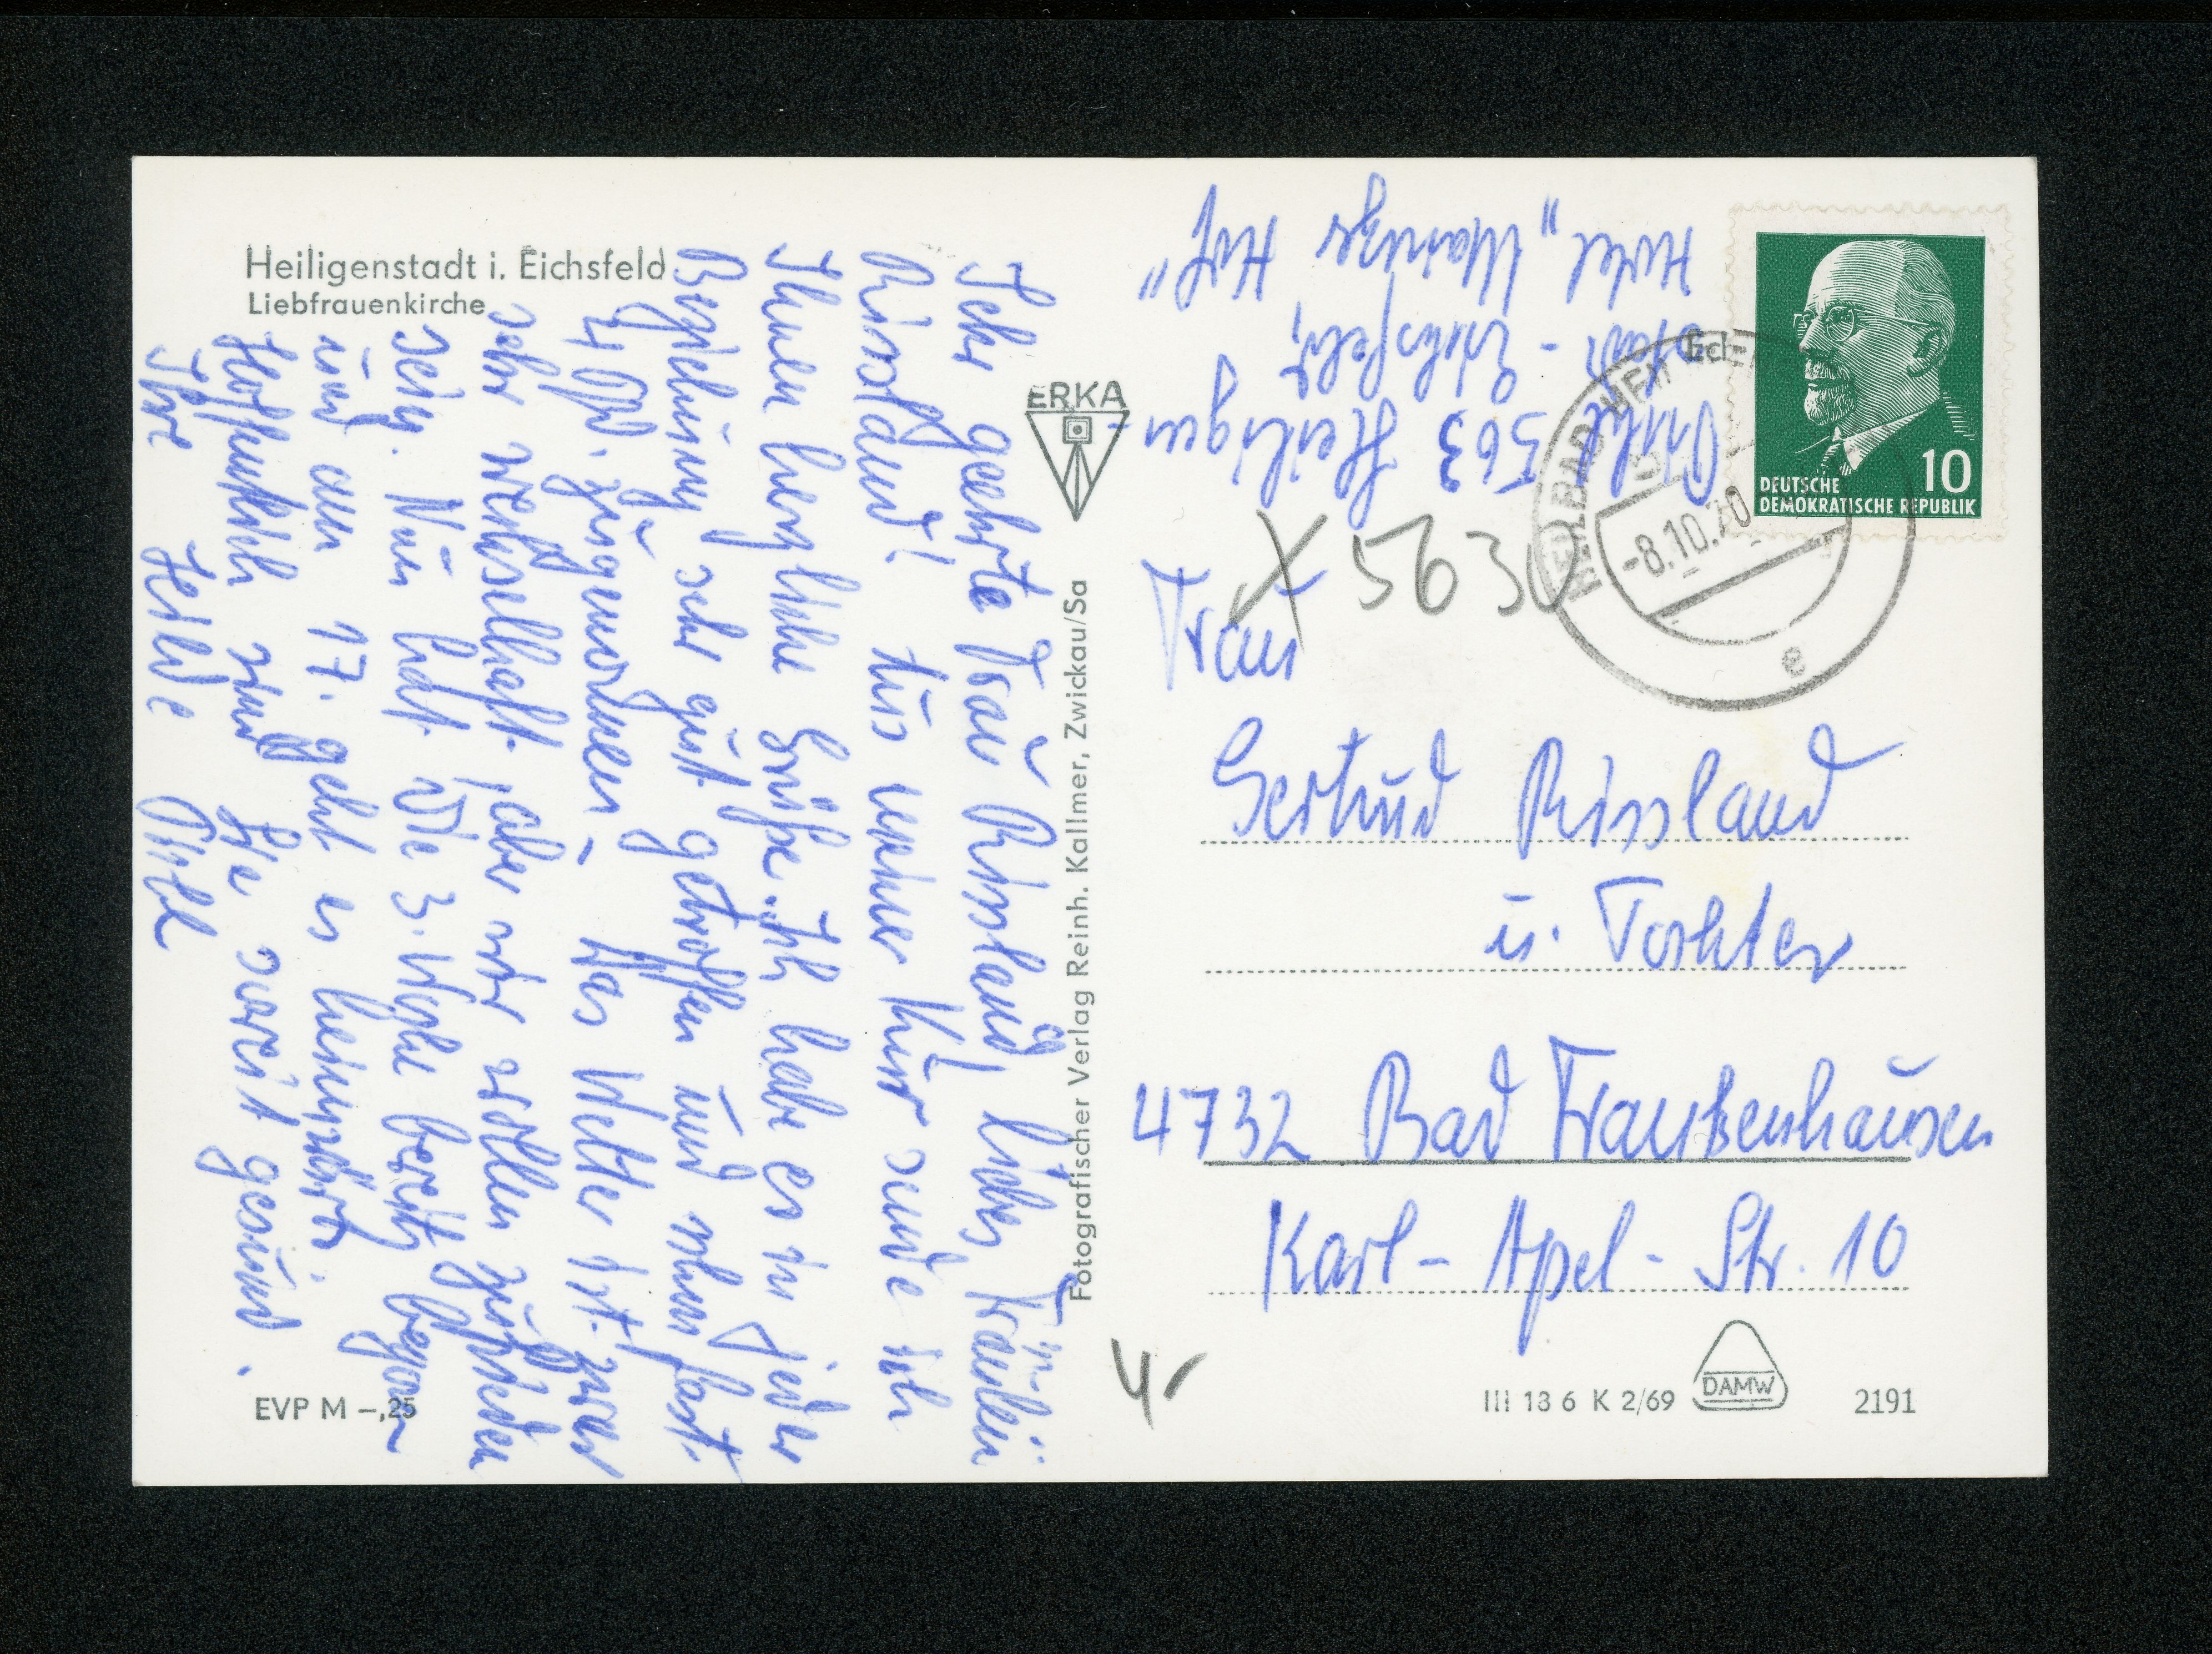 Heiligenstadt i. Eichsfeld
Liebfrauenkirche
Sehr geehrte Frau Rissland, liebes Fräulein
Rissland! Aus meiner Kur sende ich
Ihnen herzliche Grüße. Ich habe es in jeder
Beziehung sehr gut getroffen und schon fast
zugenommen. Das Wetter ist zwar
sehr wechselhaft, aber wir wollen zufrieden
sein. Nun hat die 3. Woche bereits begonnen
und am 17. geht es heimwärts.
Hoffentlich sind Sie soweit gesund.
Ihre Heilde
EVP M –,25
ERKA
Fotografischer Verlag Reinh. Kallmer, Zwickau/Sa
563 Heiligen
stadt - Eichsfeld,
Hotel „Mainzer Hof“
X 5630
HEILBAD HEILIGEN
-8.10.70
e
10
DEUTSCHE
DEMOKRATISCHE REPUBLIK
Frau
Gertrud Rissland
u. Tochter
4732 Bad Frankenhausen
Karl-Apel-Str. 10
4,-
III 18 6 K 2/69
DAMW
2191